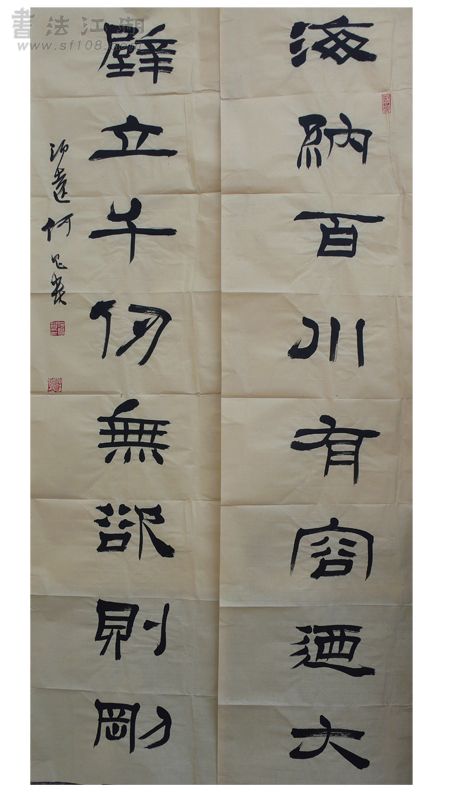 書法江湖
www.sf108.com
海納百川有容迺大
壁立千仞無欲則剛
何